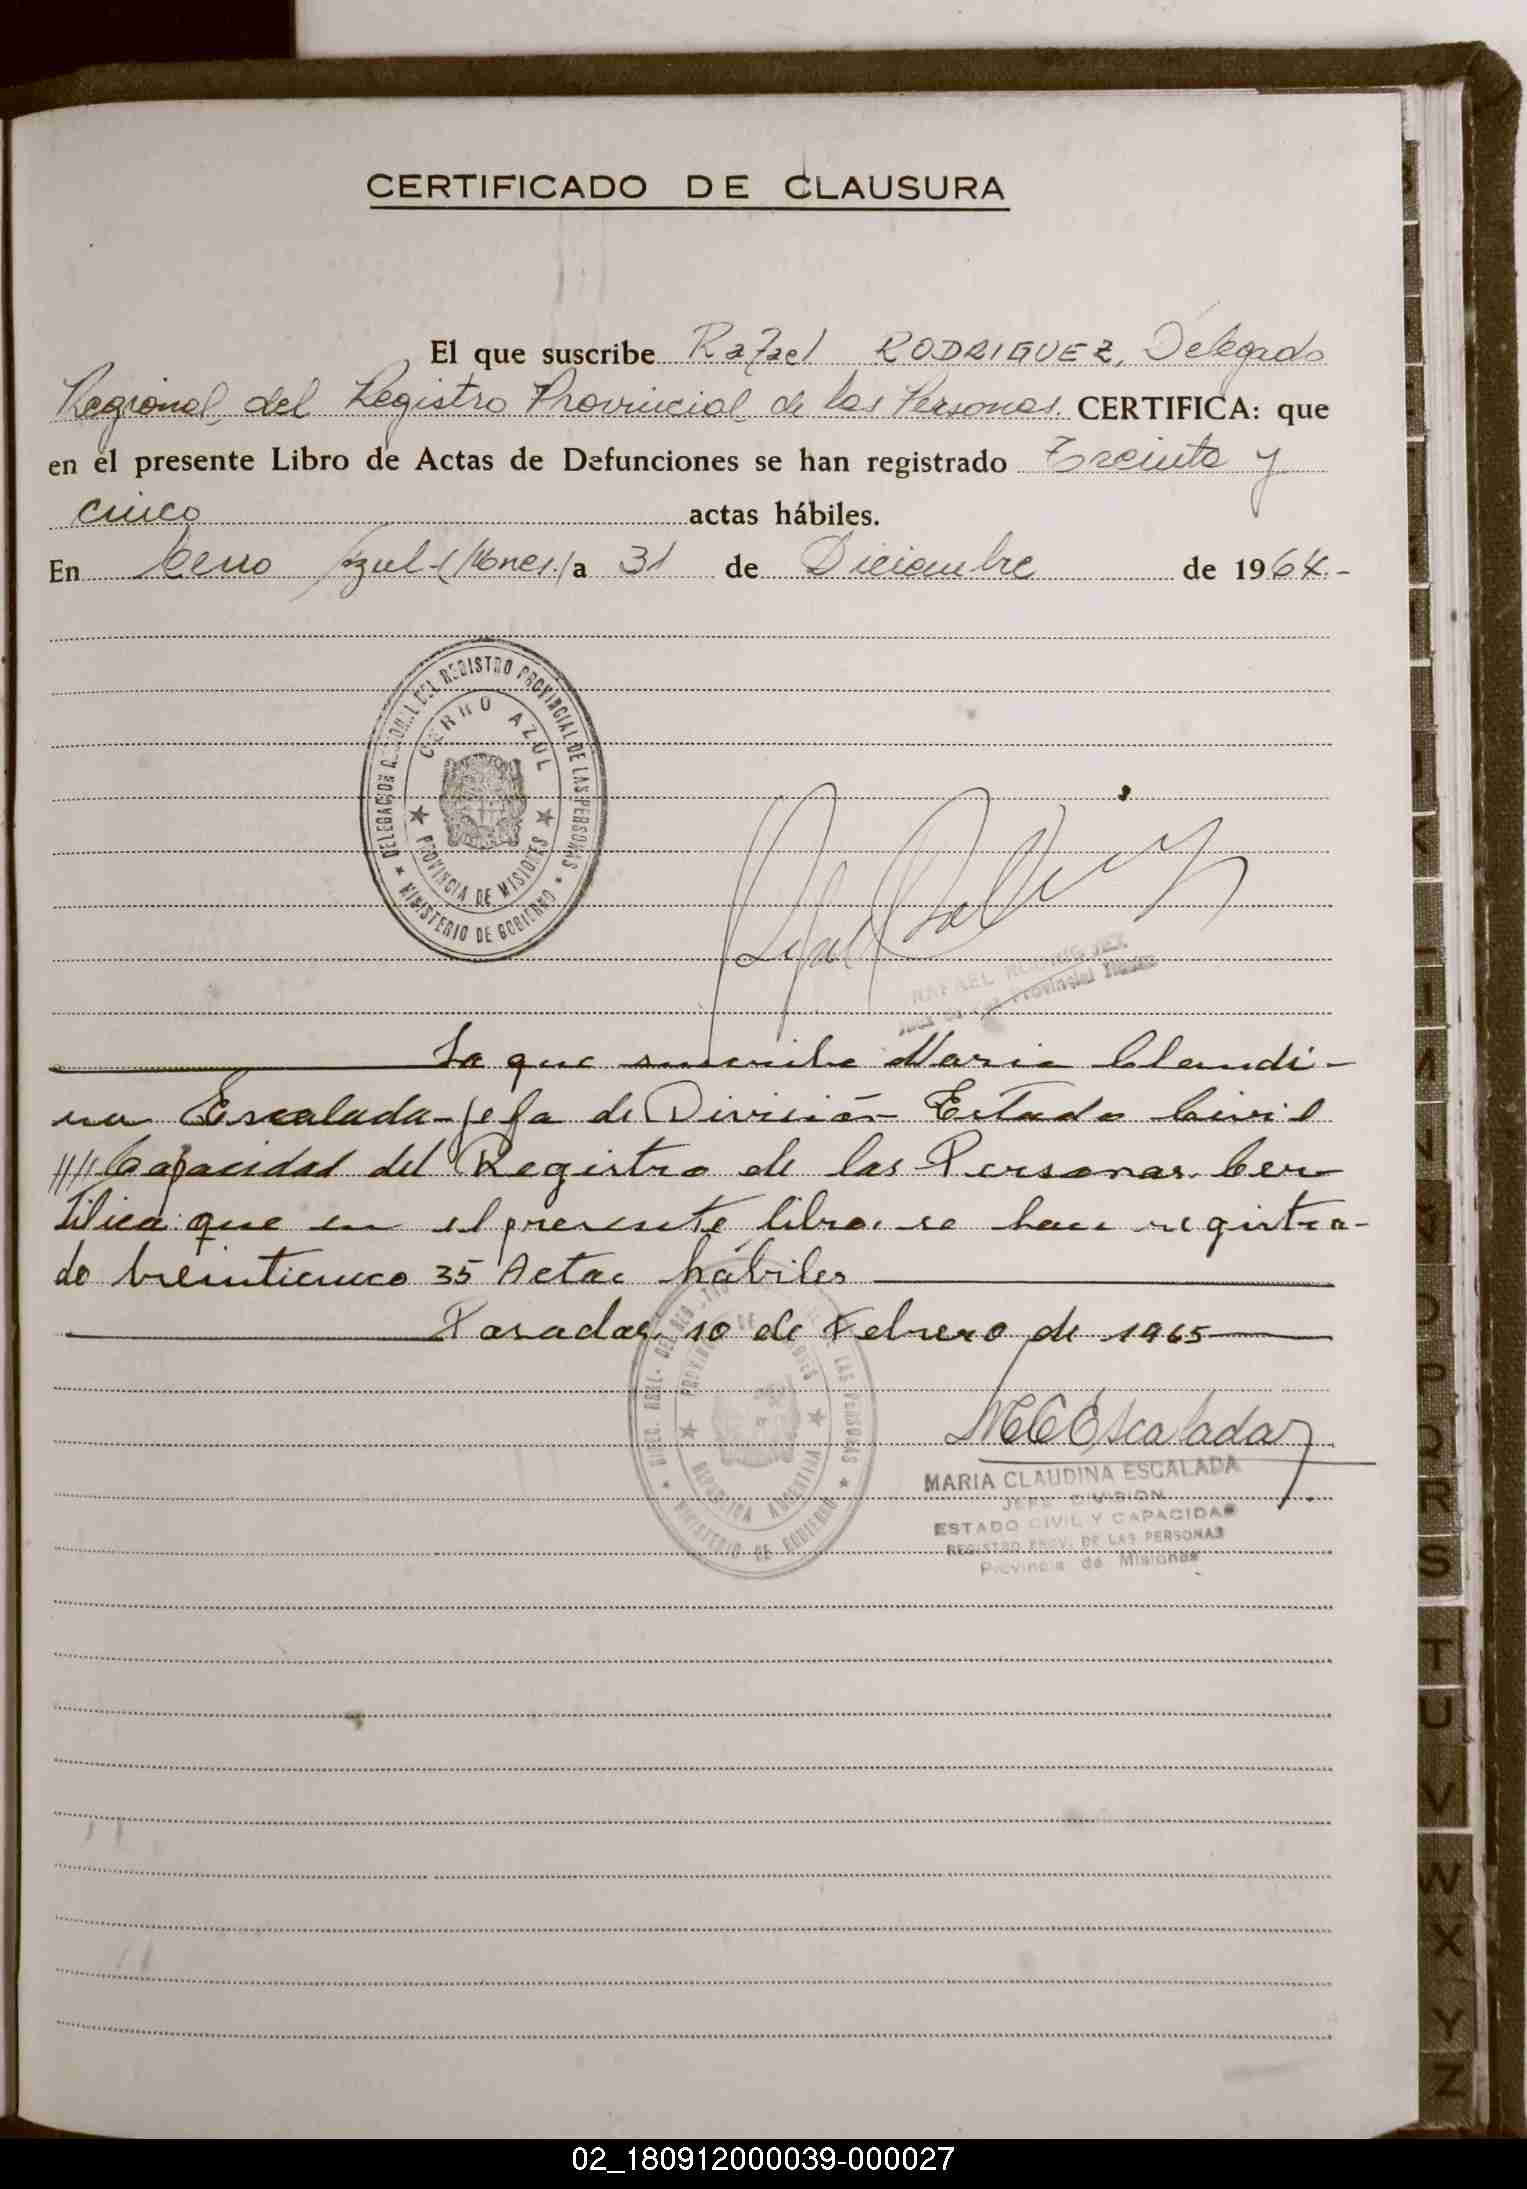 CERTIFICADO DE CLAUSURA
El que suscribe Rafael RODRIGUEZ, Delegado
Regional, del Registro Provincial de las Personas. CERTIFICA: que
en el presente Libro de Actas de Defunciones se han registrado Treinta y
cinco actas hábiles.
En Cerro Azul-(Mnes.) a 31 de Diciembre de 1964.-
DELEGACION REGIONAL DEL REGISTRO PROVINCIAL DE LAS PERSONAS
CERRO AZUL
PROVINCIA DE MISIONES
MINISTERIO DE GOBIERNO
RAFAEL RODRIGUEZ
La que suscribe Maria Claudi-
na Escalada-Jefa de División Estado Civil
//// Capacidad del Registro de las Personas. Cer
tifica: que en el presente libro, se han registra-
do treinticinco 35 Actas hábiles
Posadas, 10 de Febrero de 1965
DE LAS PERSONAS
REPUBLICA ARGENTINA
MINISTERIO DE GOBIERNO
MCEscalada
MARIA CLAUDINA ESCALADA
JEFE DIVISION
ESTADO CIVIL Y CAPACIDAD
REGISTRO PROV. DE LAS PERSONAS
Provincia de Misiones
K
L
N
O
P
Q
R
S
T
U
V
W
X
Y
Z
02_180912000039-000027